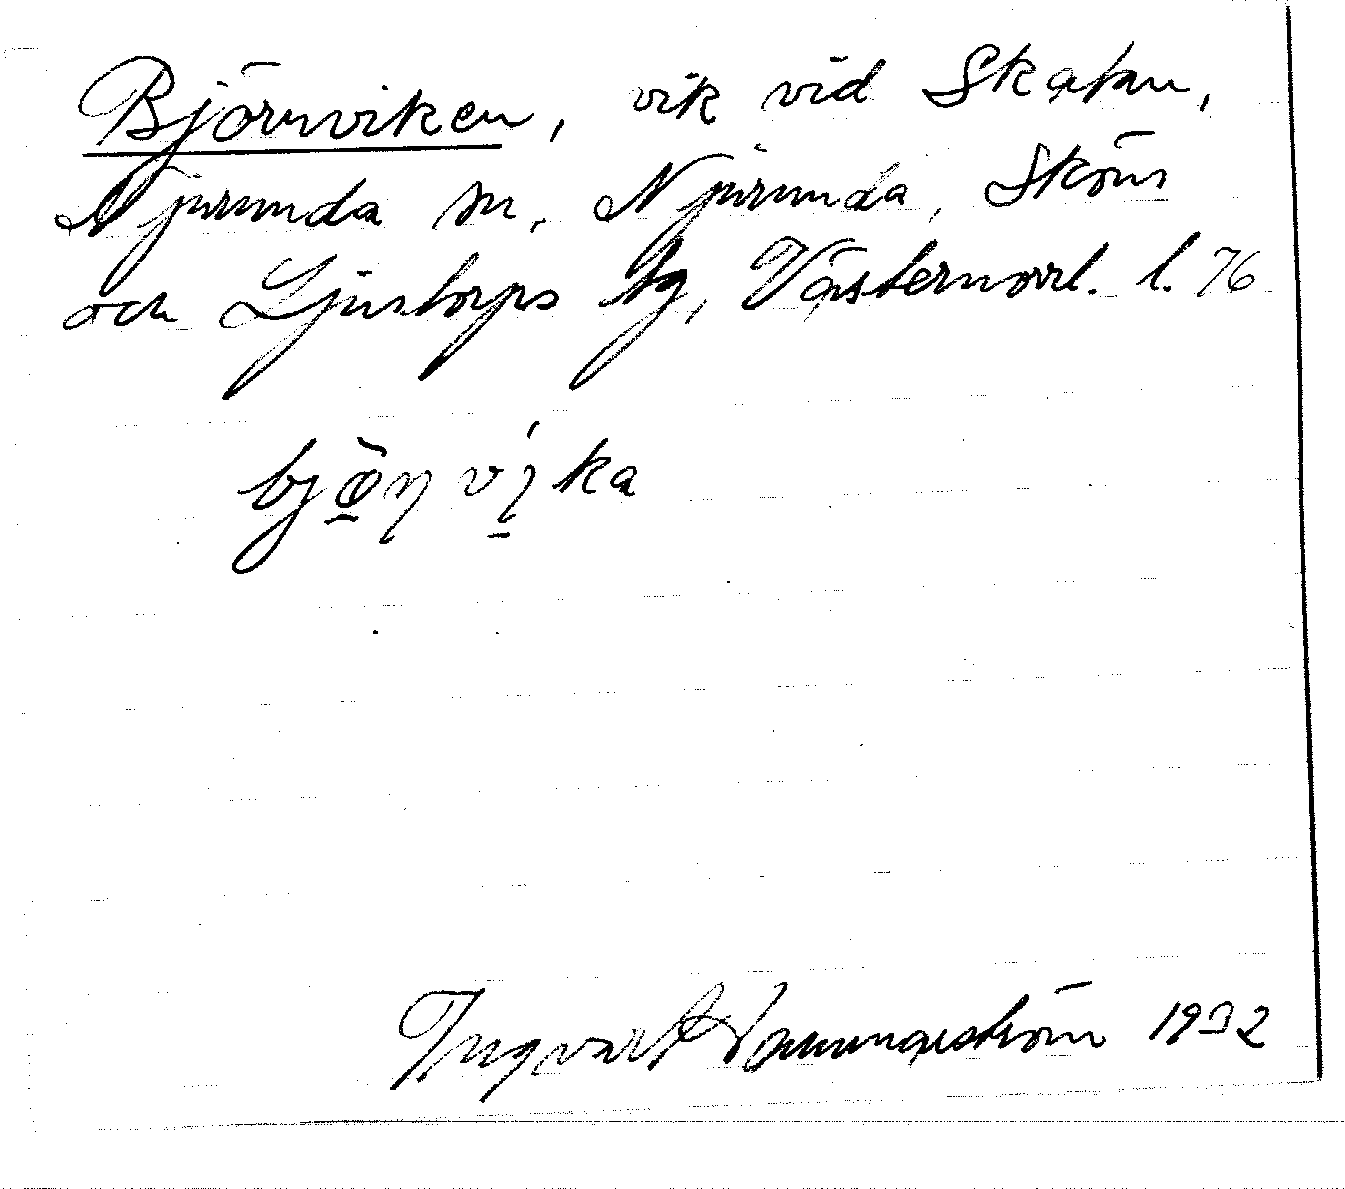 Björnviken, vik vid Skatan,
Njurunda sn, Njurunda, Sköns
och Ljustorps tg, Västernorrl. l. 76
bjö̀ṇ ví̱ka
Ingvar 1932